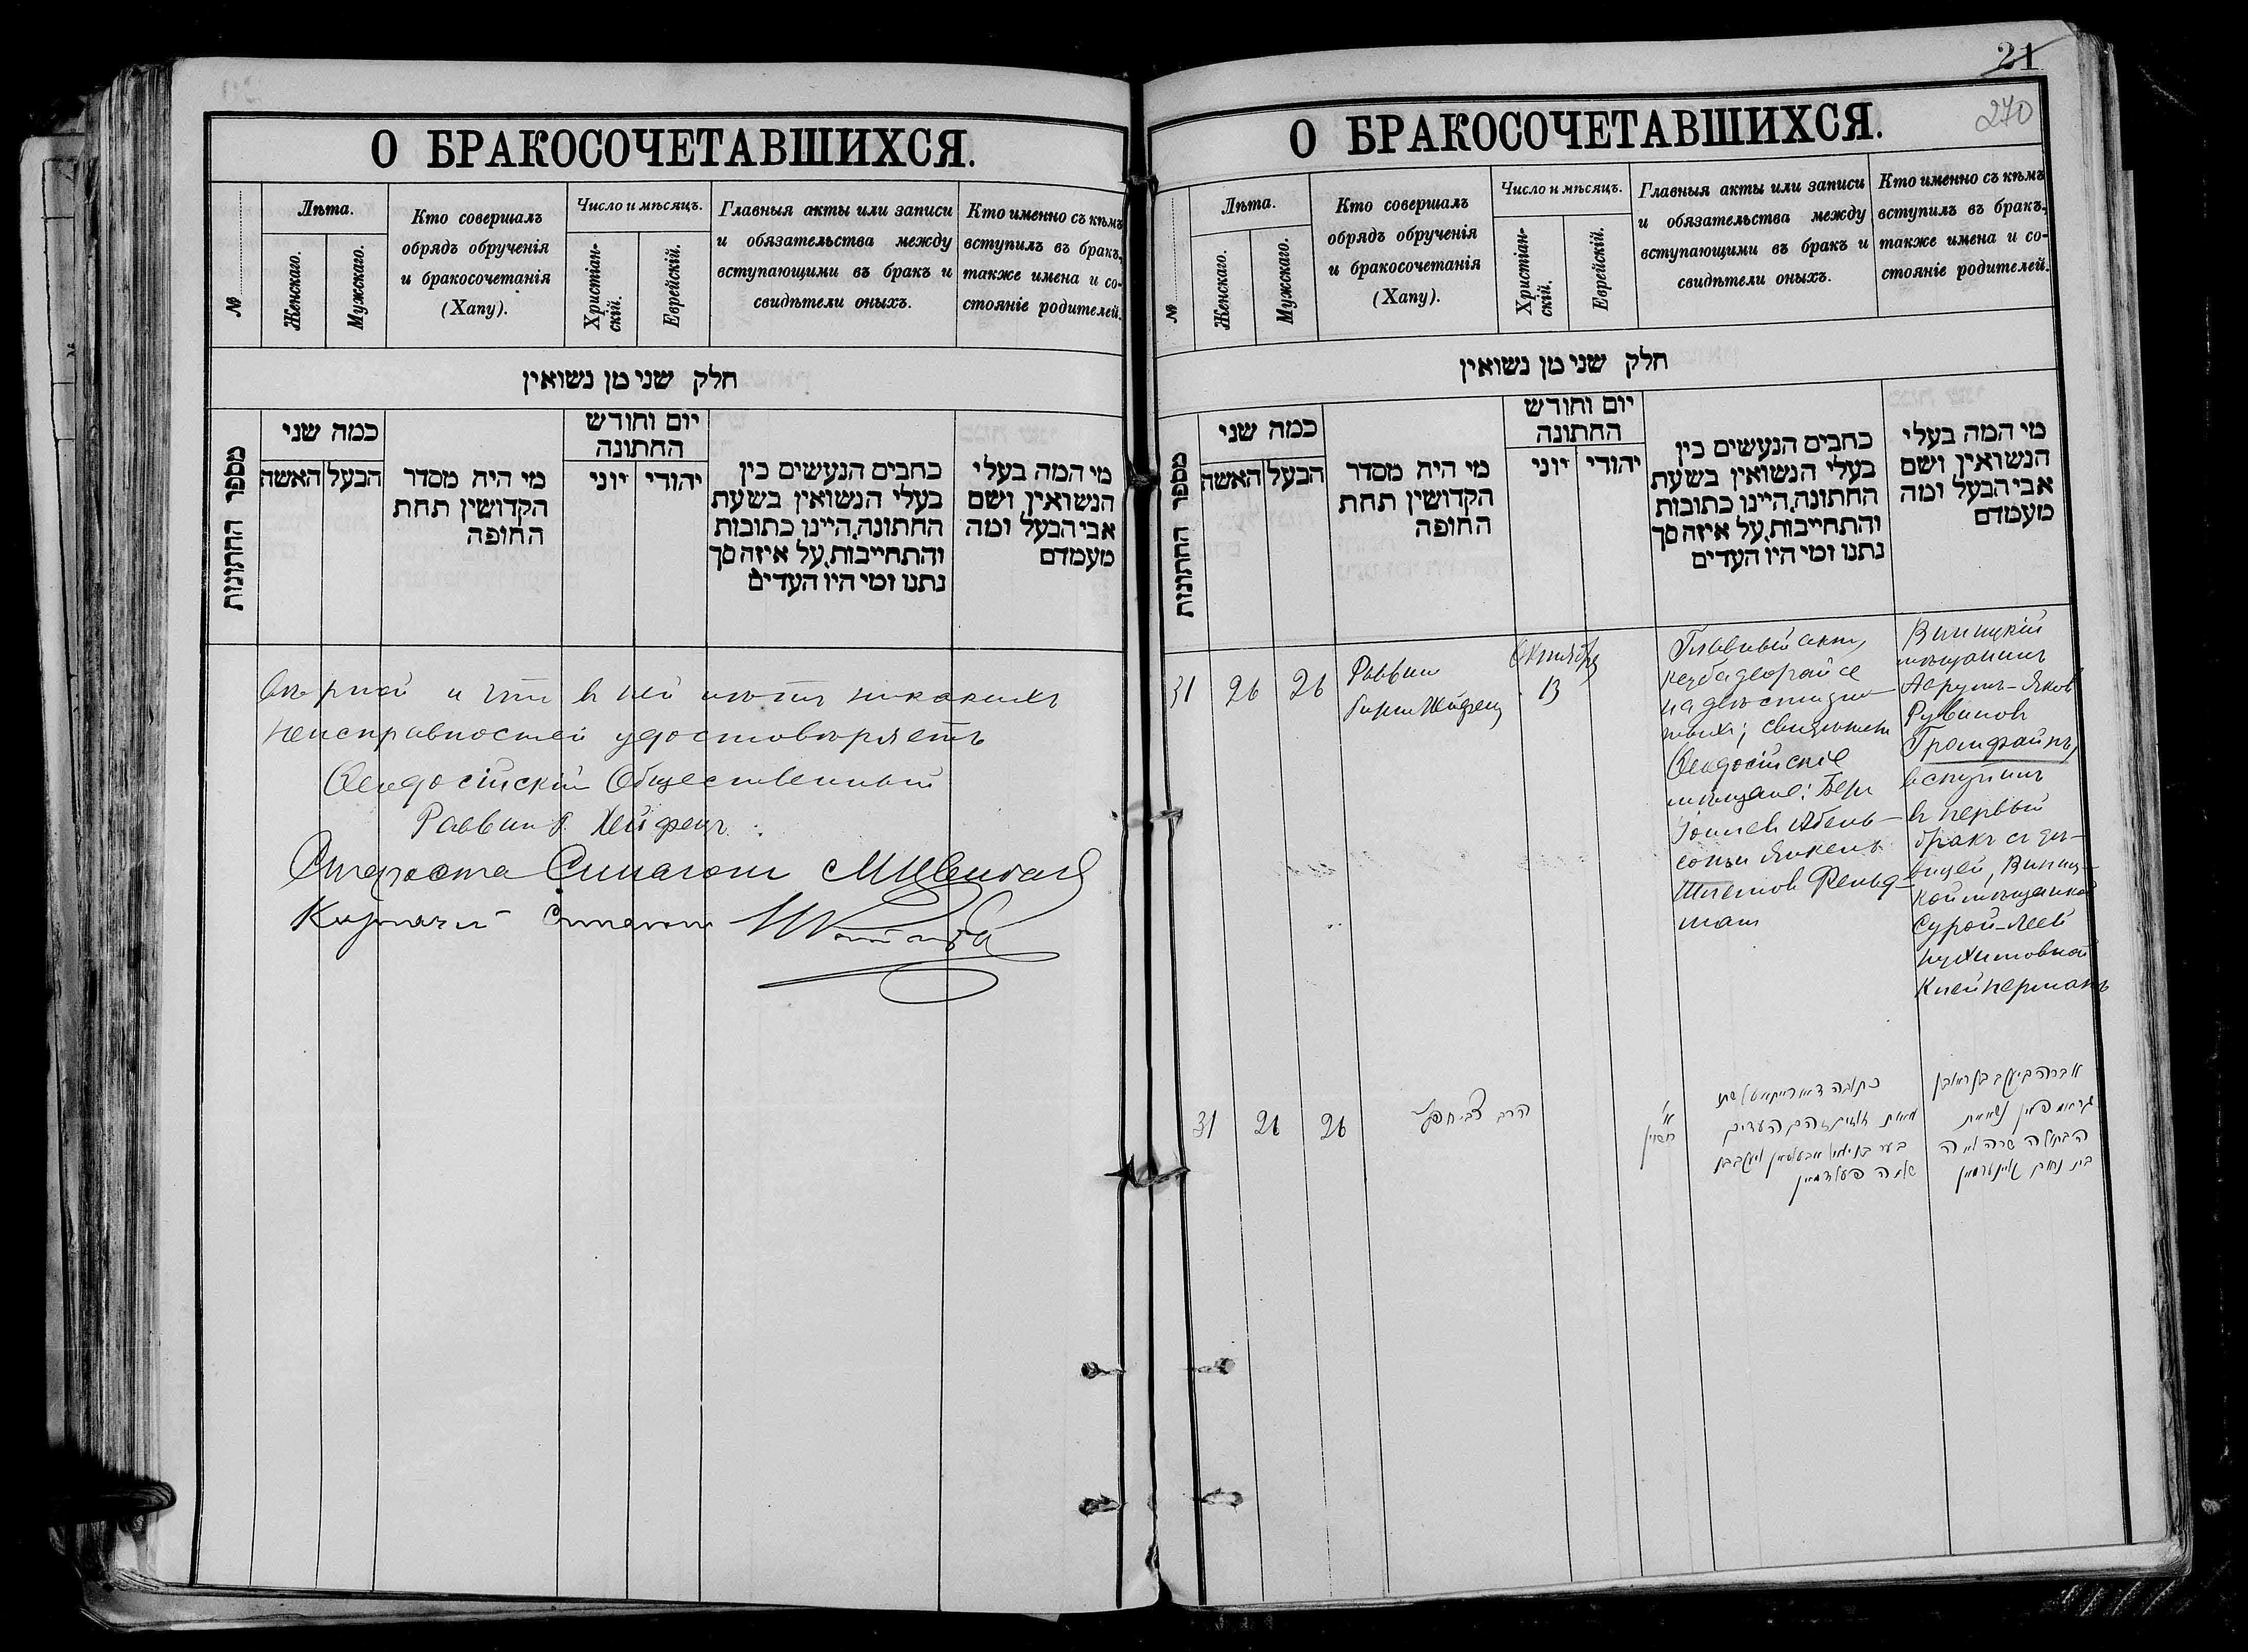 О БРАКОСОЧЕТАВШИХСЯ.
№
Лѣта.
Женскаго.
Мужскаго.
Кто совершалъ
обрядъ обрученія
и бракосочетанія
(Хапу).
Число и мѣсяцъ.
Христіан-
скій.
Еврейскій.
Главныя акты или записи
и обязательства между
вступающими въ бракъ и
свидѣтели оныхъ.
Кто именно съ кѣмъ
вступилъ въ бракъ,
также имена и со-
стояніе родителей.
חלק שני מן נשואין
מספר החתונות
כמה שני
הבעל
האשה
מי היה מסדר
הקדושין תחת
החופה
יום וחודש
החתונה
יהודי
יוני
כחבים הנעשים בין
בעלי הנשואין בשעת
החתונה, היינו כתובות
והתחייבות, על איזה סך
נתנו ומי היו העדים
מי המה בעלי
הנשואין ושם
אבי הבעל ומה
מעמדם
вѣрной и что в ней нѣтъ никакихъ
неисправностей удостовѣряетъ
Ѳеодосійскій Общественный
Раввинъ Хейфецъ
Староста Синагоги
Казначей Синагоги
21
270
О БРАКОСОЧЕТАВШИХСЯ.
№
Лѣта.
Женскаго.
Мужскаго.
Кто совершалъ
обрядъ обрученія
и бракосочетанія
(Хапу).
Число и мѣсяцъ.
Христіан-
скій.
Еврейскій.
Главныя акты или записи
и обязательства между
вступающими въ бракъ и
свидѣтели оныхъ.
Кто именно съ кѣмъ
вступилъ въ бракъ,
также имена и со-
стояніе родителей.
חלק שני מן נשואין
מספר החתונות
כמה שני
הבעל
האשה
מי היה מסדר
הקדושין תחת
החופה
יום וחודש
החתונה
יהודי
יוני
כחבים הנעשים בין
בעלי הנשואין בשעת
החתונה, היינו כתובות
והתחייבות, על איזה סך
נתנו ומי היו העדים
מי המה בעלי
הנשואין ושם
אבי הבעל ומה
מעמדם
31 26 26
Раввин
Хейфец
Октября
13
Главный актъ,
на двѣсти
свидѣтели
Ѳеодосійскіе
мѣщане: Бер
Іоилев Абель-
сон и Янкель
Шлемов Фельд-
ман
Винницкій
мѣщанинъ
Аврумъ-Яков
Рувинов
Гройсфайнъ,
вступилъ
в первый
бракъ съ дѣ-
вицей, Винниц-
кой мѣщанкой
Сурой-Леей
Нухимовной
Клейнерманъ
31 26 26
הרב צבי חפץ
א׳
חשון
כתובה דאורייתא
מאת זהובים העדים
בער בן יואל אבעלסאן ויעקב בן
שלמה פעלדמאן
אברהם יעקב בן ראובן
נשא את
הבתולה שרה לאה
בת נחום קליינערמאן